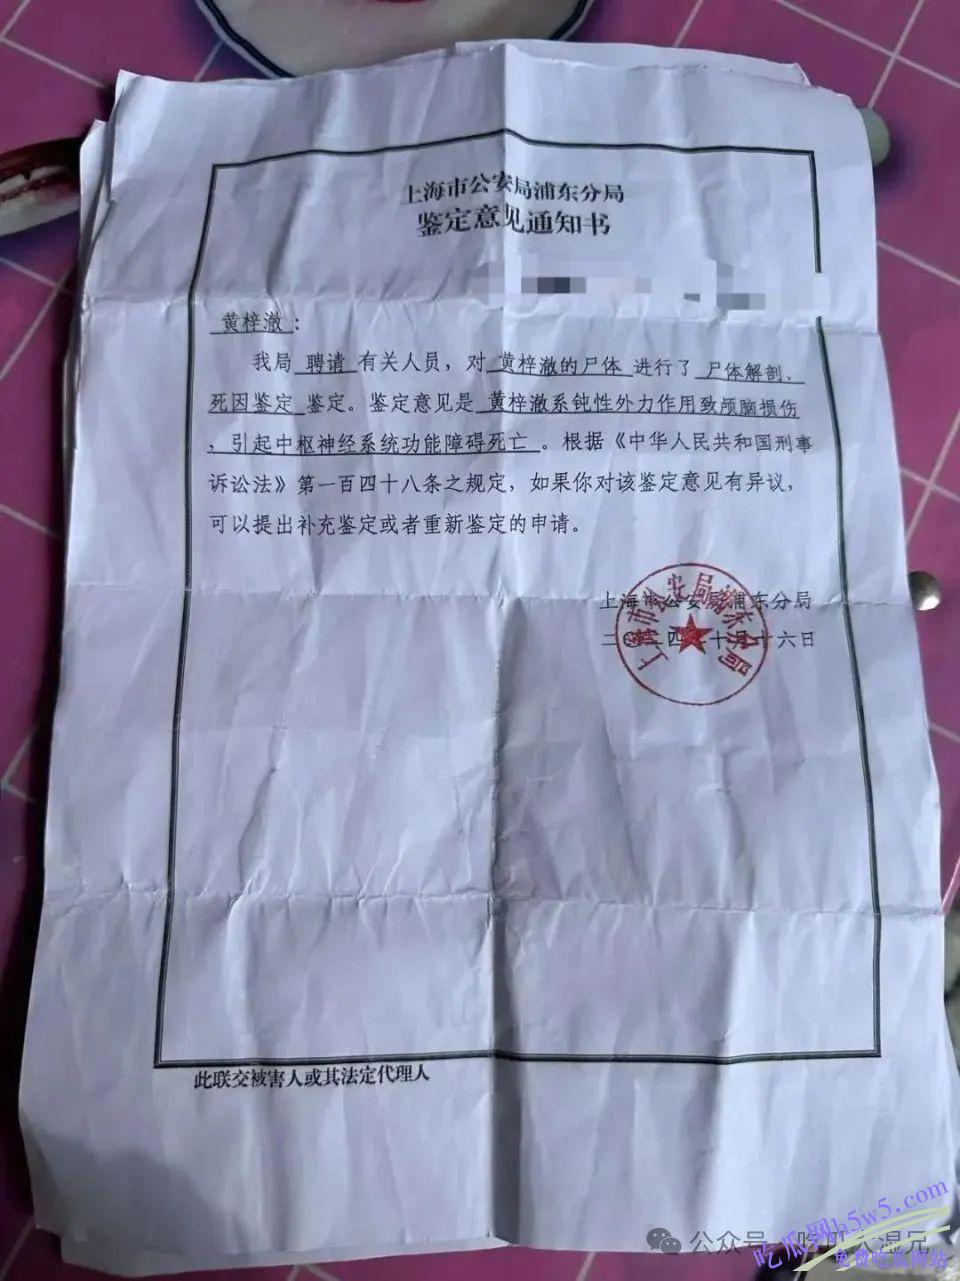 上海市公安局浦东分局
鉴定意见通知书
黄梓澈：
我局 聘请 有关人员，对 黄梓澈的尸体 进行了 尸体解剖、
死因鉴定 鉴定。鉴定意见是 黄梓澈系钝性外力作用致颅脑损伤
，引起中枢神经系统功能障碍死亡 。根据《中华人民共和国刑事
诉讼法》第一百四十八条之规定，如果你对该鉴定意见有异议，
可以提出补充鉴定或者重新鉴定的申请。
上海市公安局浦东分局
二〇二四年十月十六日
上海市公安局浦东分局
此联交被害人或其法定代理人
公众号
吃瓜网h5w5.com
免费吃瓜网站